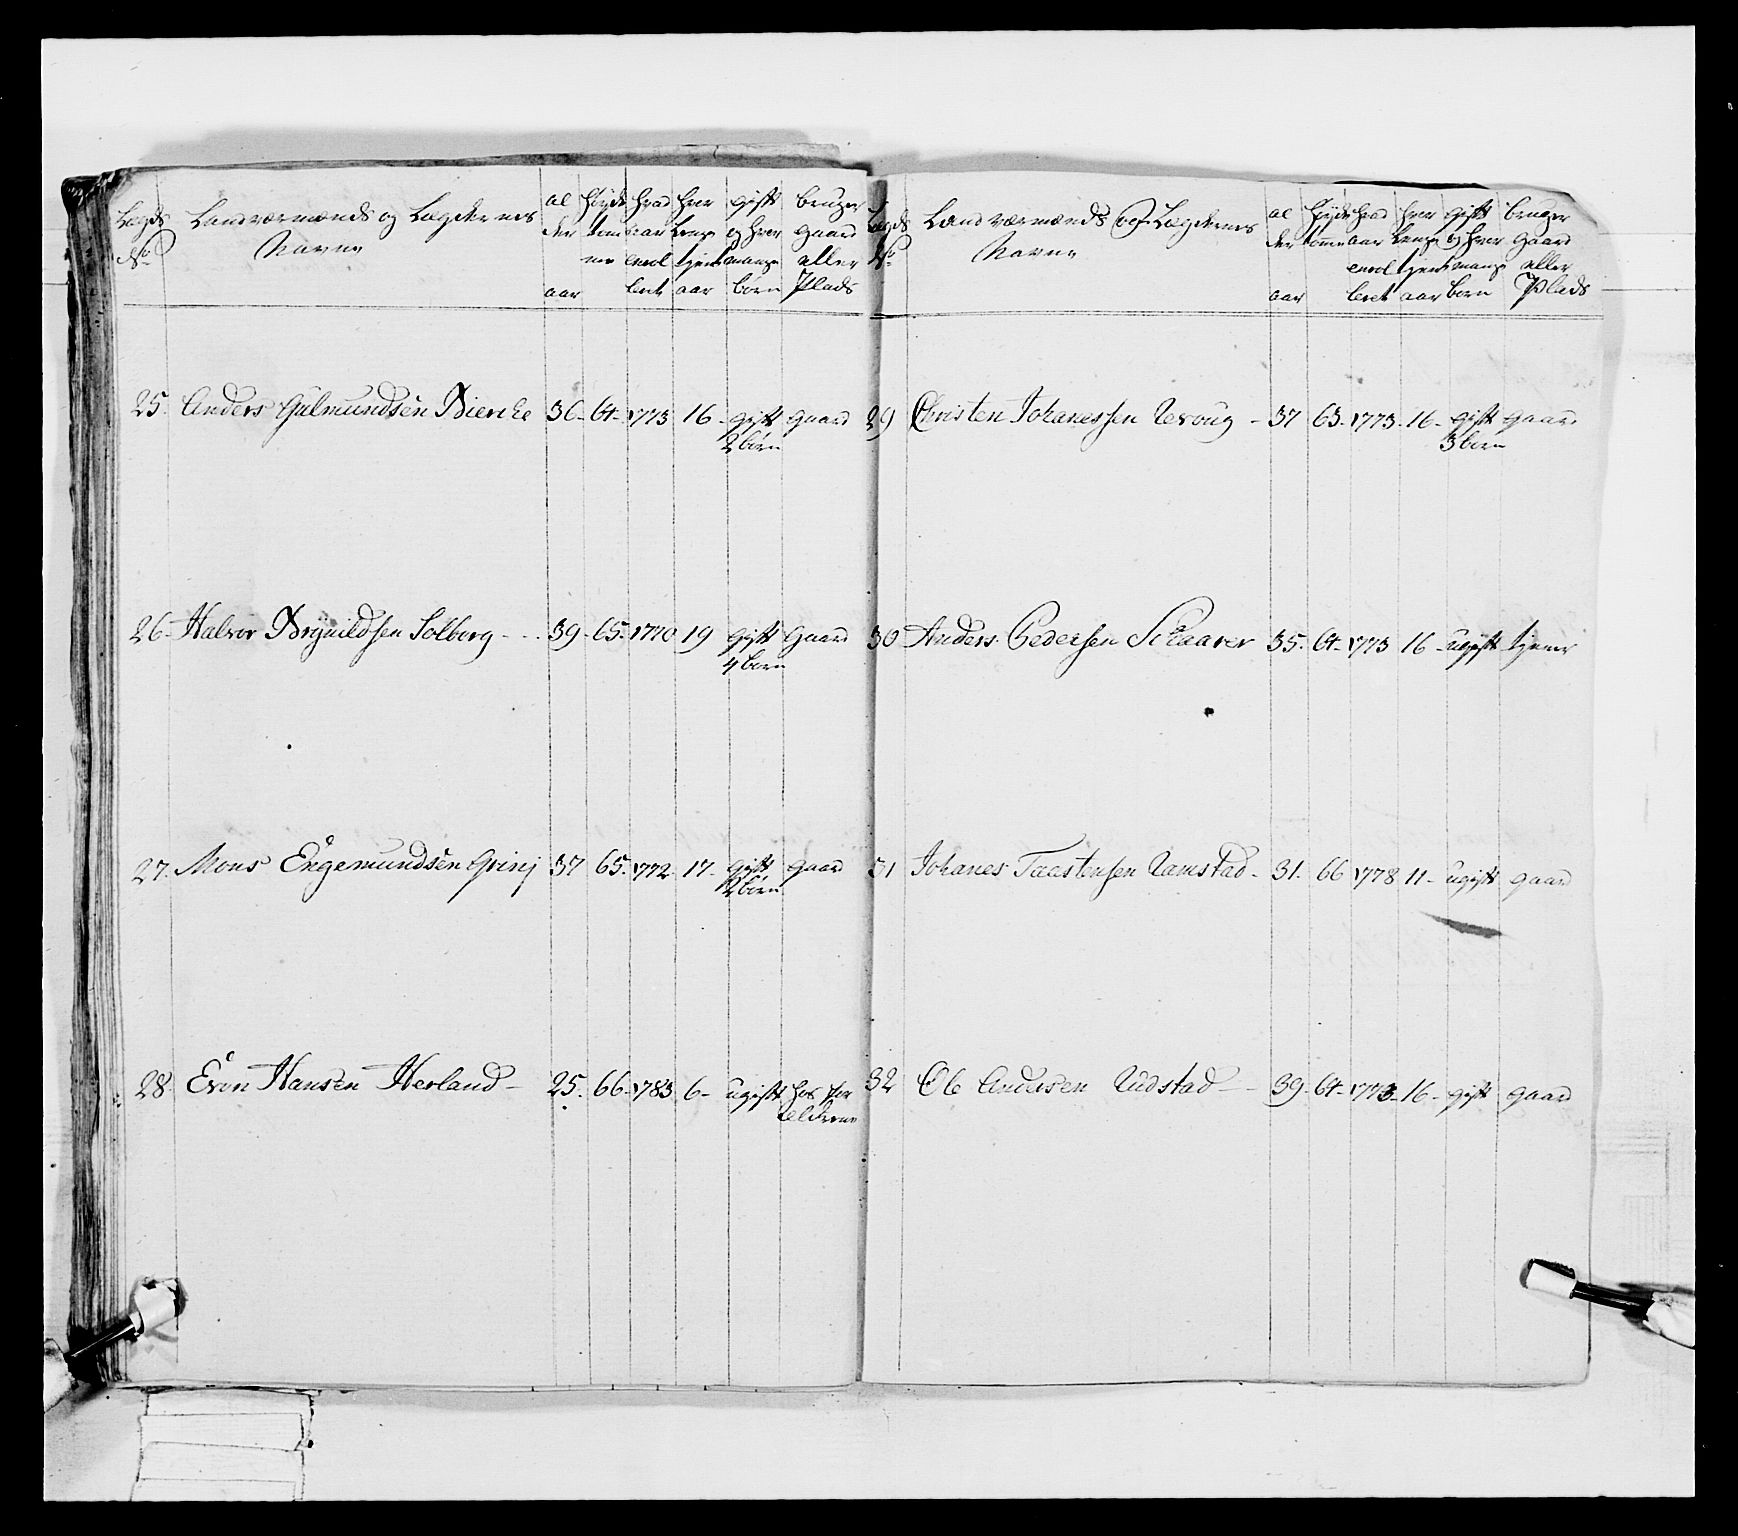 Lægds No
Landværnmænds og Lægdernes Navne
alder aar
høyde tommer
hvad aar enrolleret
hvor længe tient aar
gift og hvor mange børn
bruger gaard eller Plads
25. Anders Gulmundsen Biercke 36- 64- 1773 16- gift gaard
2 børn
26- Halvor Brynildsen Solberg - - 39- 65- 1770 19 gift gaard
4 børn
27. Mons Engemundsen 37 65- 1772- 17- gift gaard
2 børn
28. Even Hansen Herland - 25- 66- 1783 6- ugift hos for
ældrene
Lægds No
Landværnmænds og Lægdernes Navne
alder aar
høyde tomme
hvad aar enrolleret
hvor længe tient aar
gift og hvor mange børn
bruger gaard eller Plads
29 Christen Johanessen - 37 63- 1773- 16- gift gaard
3 børn
30 Anders Pedersen Schaarer 35- 64- 1773 16- ugift tjener
31 Johanes Taastensen Ramstad - 31- 66 1778 11- ugift gaard
32 Ole Andersen Rudstad - 39- 64- 1773- 16- gift gaard